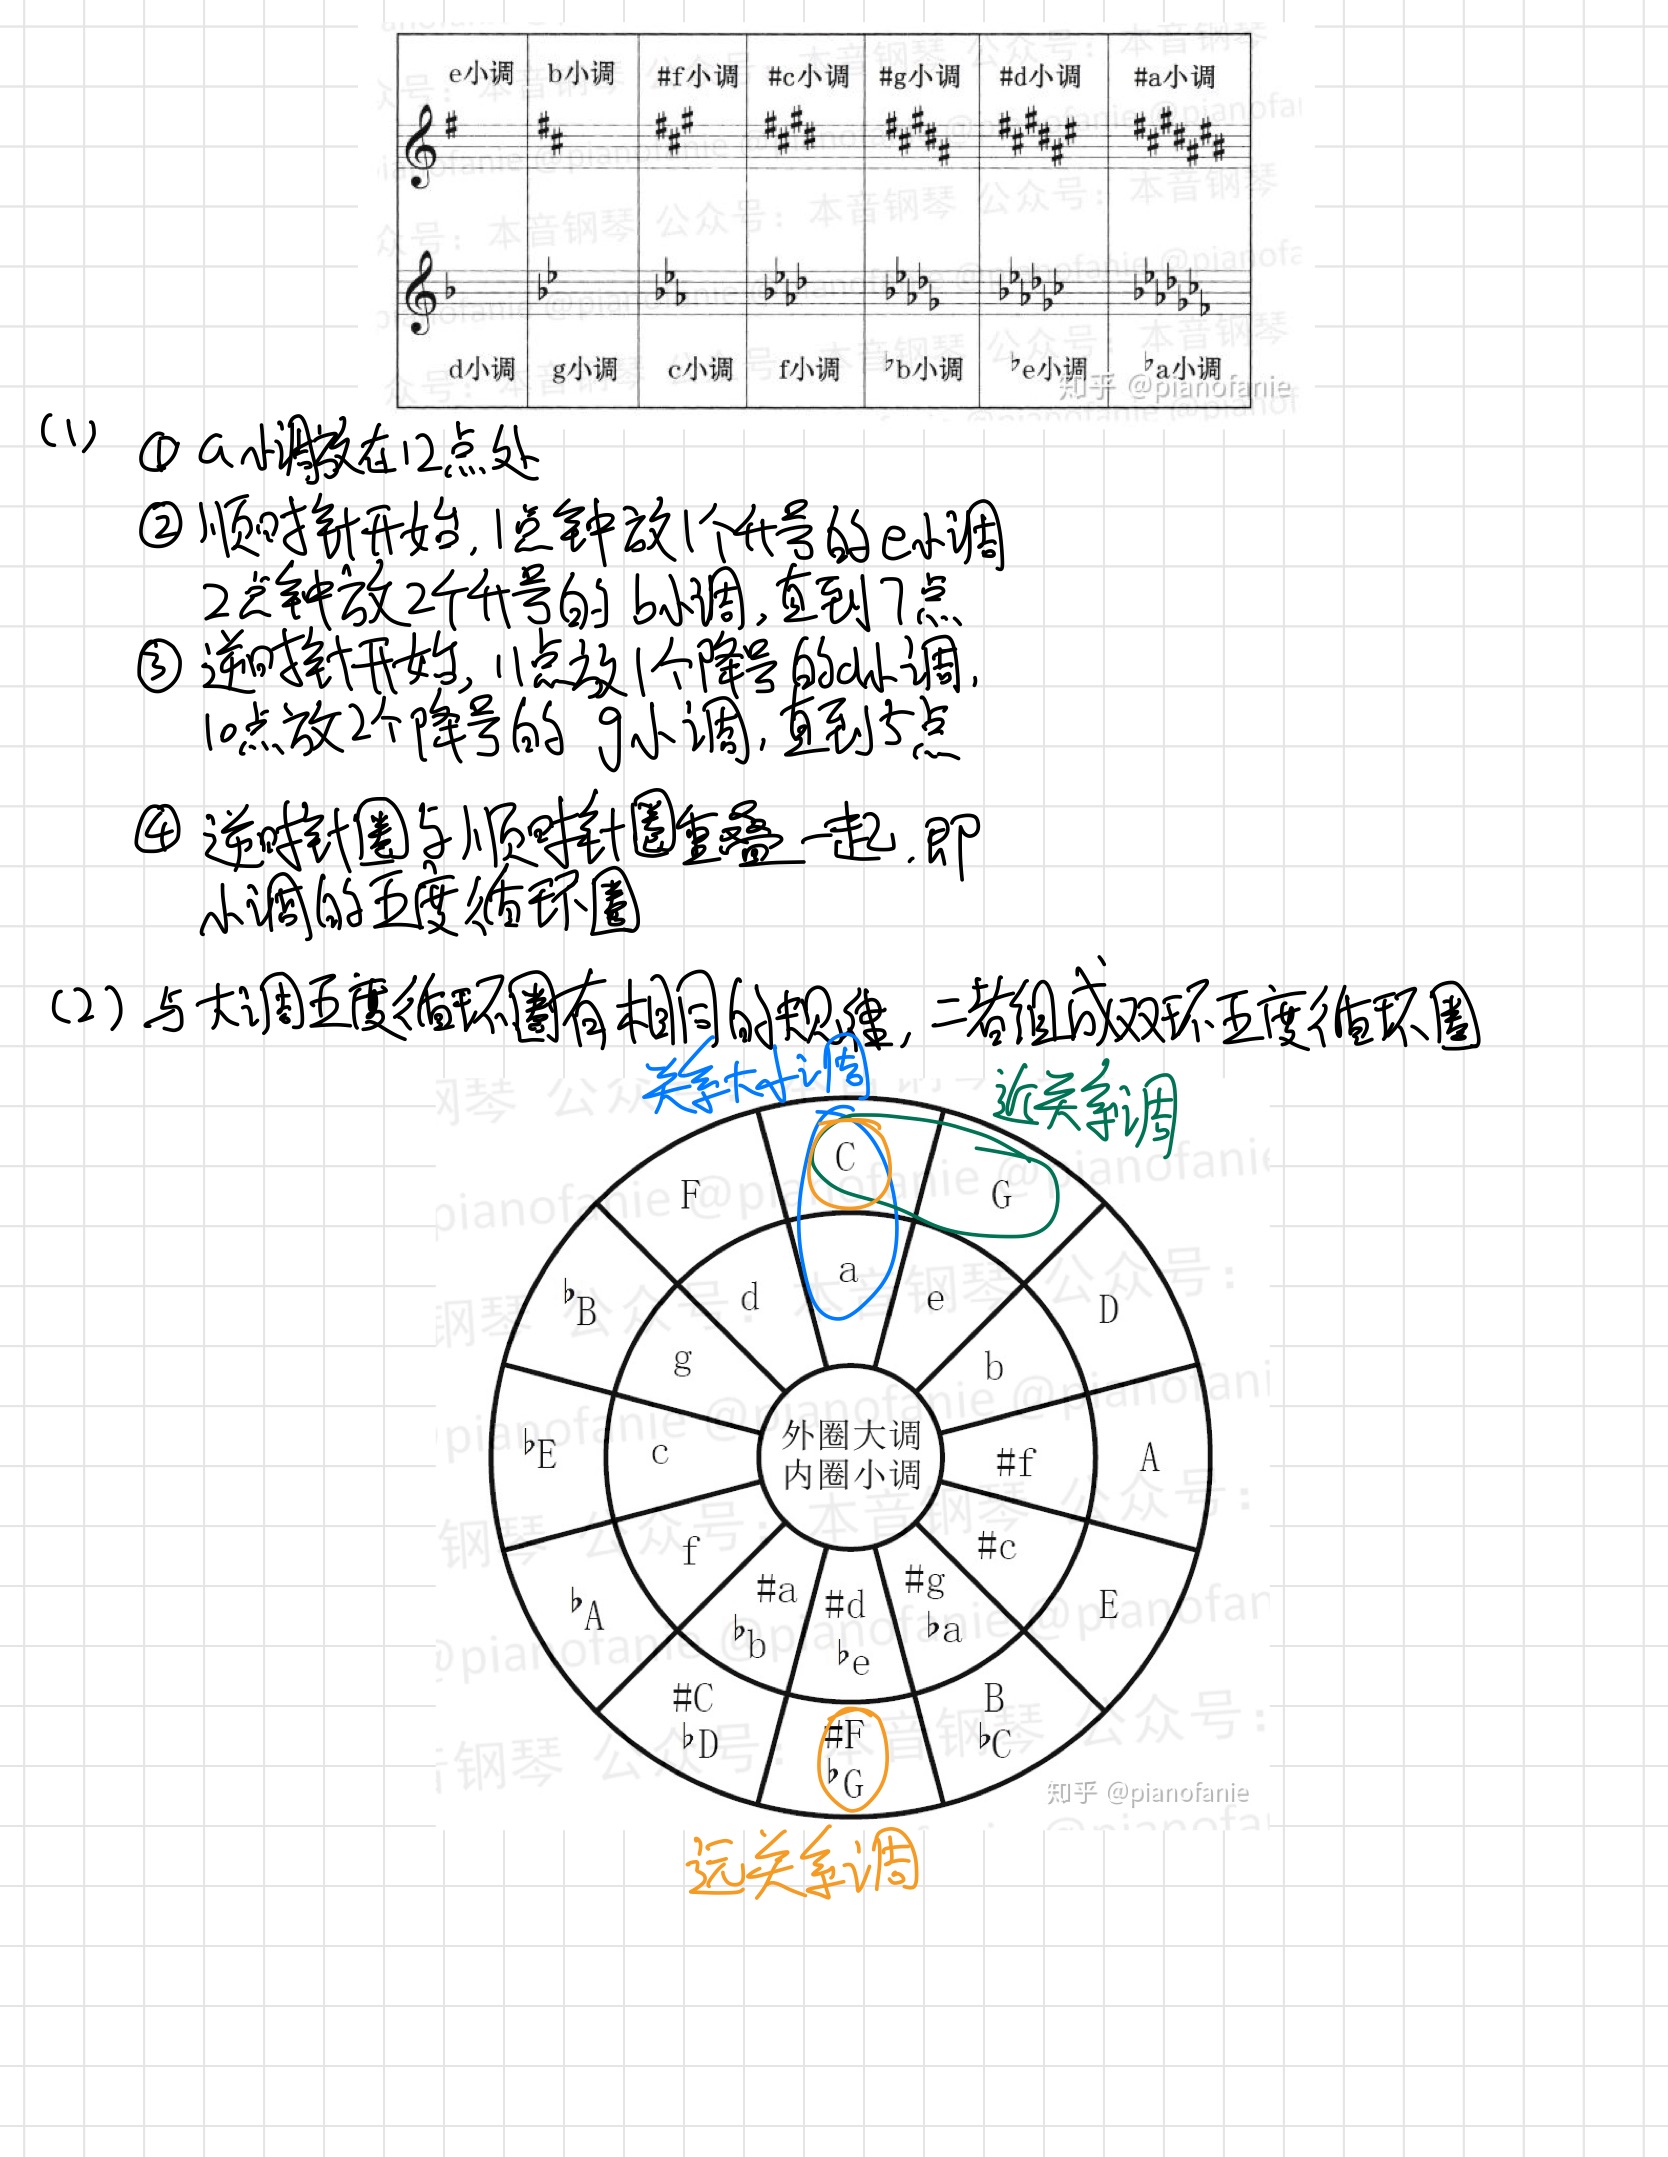 e小调 b小调 #f小调 #c小调 #g小调 #d小调 #a小调
d小调 g小调 c小调 f小调 ♭b小调 ♭e小调 ♭a小调
知乎 @pianofanie
(1) ① a小调放在12点处
② 顺时针开始,1点钟放1个升号的e小调
2点钟放2个升号的b小调,直到7点
③ 逆时针开始,11点放1个降号的d小调,
10点放2个降号的g小调,直到5点
④ 逆时针圈与顺时针圈重叠一起,即
小调的五度循环圈
(2) 与大调五度循环圈有相同的规律,二者组成双环五度循环圈
关系大小调
近关系调
C
F
G
a
d
e
♭B
D
g
b
♭E
c
外圈大调
内圈小调
#f
A
f
#c
♭A
#a
♭b
#d
♭e
#g
♭a
E
#C
♭D
#F
♭G
B
♭C
知乎 @pianofanie
远关系调